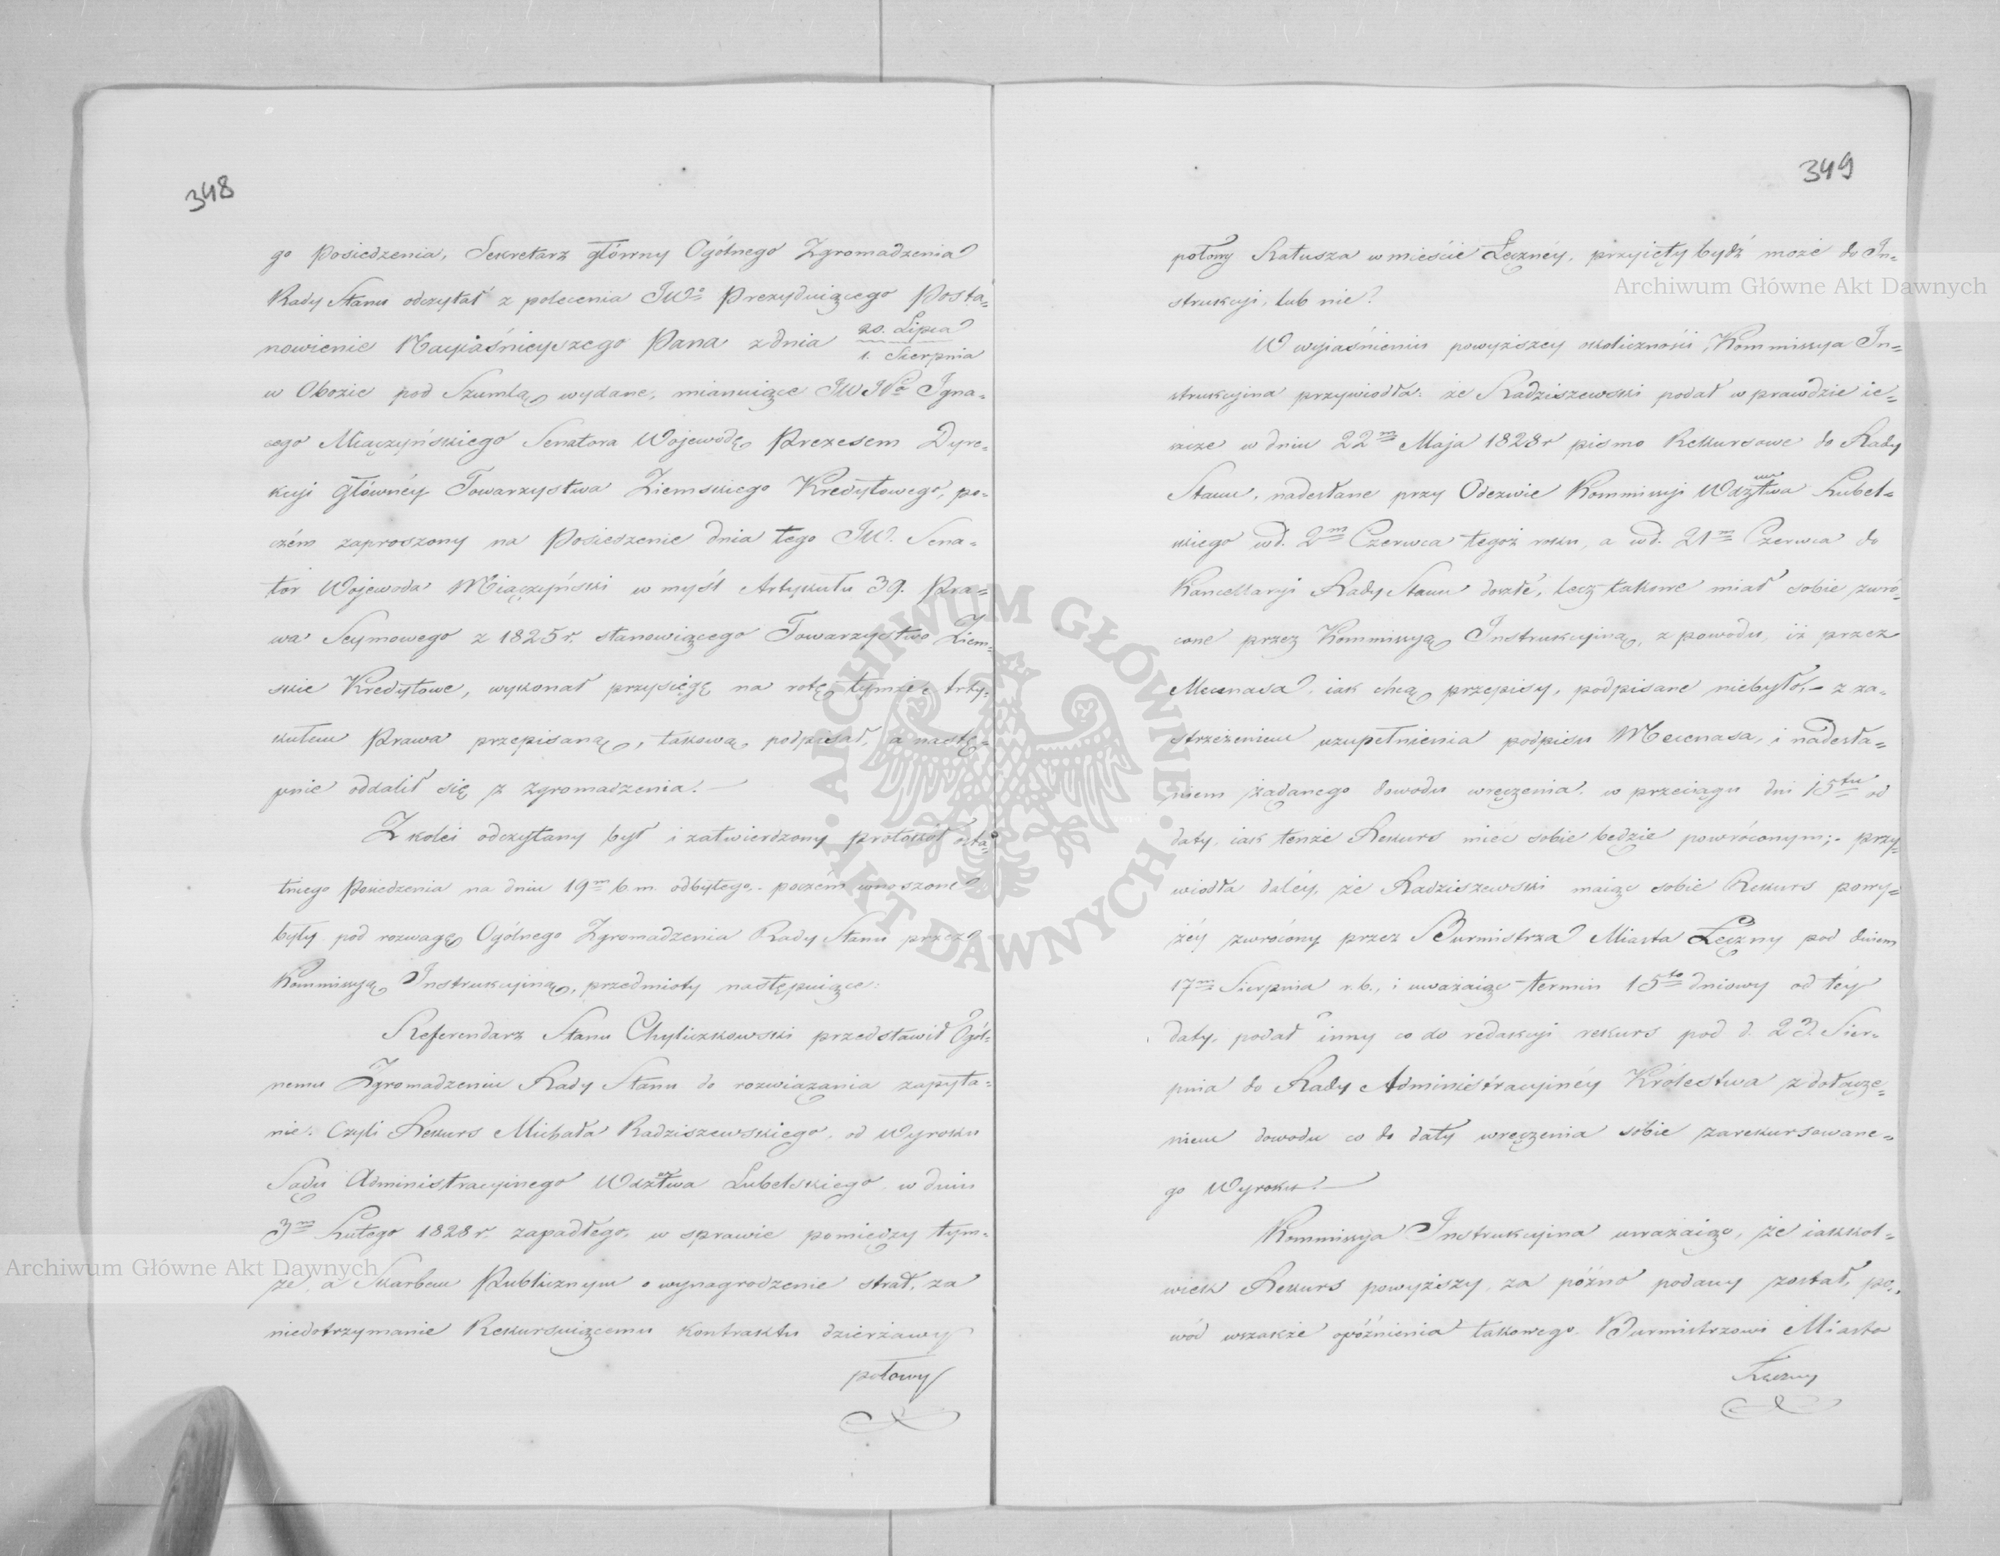 348
go Posiedzenia, Sekretarz główny Ogólnego Zgromadzenia
Rady Stanu odczytał z polecenia JWo Prezyduiącego Posta-
nowienie Nayiaśnieyszego Pana z dnia 20. Lipca
1. Sierpnia
w Obozie pod Szumlą wydane, mianuiące JW Igna-
cego Miączyńskiego Senatora Wojewodę Prezesem Dyre-
kcji Główney Towarzystwa Ziemskiego Kredytowego, po-
czém zaproszony na Posiedzenie dnia tego JW. Sena-
tor Wojewoda Miączyński w myśl Artykułu 39. Pra-
wa Seymowego z 1825 r. stanowiącego Towarzystwo Ziem-
skie Kredytowe, wykonał przysięgę na rotę tymże Arty-
kułem Prawa przepisaną, takową podpisał, a nastę-
pnie oddalił się z zgromadzenia. —
Z kolei odczytany był i zatwierdzony protokół osta-
tniego Posiedzenia na dniu 19m b. m. odbytego, poczem wnoszone
były pod rozwagę Ogólnego Zgromadzenia Rady Stanu przez
Kommissyą Instrukcyiną, przedmioty następuiące:
Referendarz Stanu Chyliczkowski przedstawił Ogól-
nemu Zgromadzeniu Rady Stanu do rozwiązania zapyta-
nie: Czyli Rekurs Michała Radziszewskiego, od Wyroku
Sądu Administracyinego Wdztwa Lubelskiego w dniu
3m Lutego 1828 r. zapadłego, w sprawie pomiędzy tym-
że, a Skarbem Publicznym o wynagrodzenie strat, za
niedotrzymanie Rekursuiącemu kontraktu dzierżawy
połowy
349
połowy Ratusza w mieście Łęczney, przyięty bydź może do In-
strukcji, lub nie?
W wyiaśnieniu powyższey okoliczności, Kommissya In-
strukcyina przywiodła: że Radziszewski podał wprawdzie ie-
szcze w dniu 22m Maja 1828 r pismo Rekursowe do Rady
Stanu, nadesłane przy Odezwie Kommissji Wdztwa Lubel-
skiego w d. 2m Czerwca tegoż roku, a w d. 21m Czerwca do
Kancellaryi Rady Stanu doszłé, lecz takowe miał sobie zwró-
cone przez Kommissyą Instrukcyiną, z powodu, iż przez
Mecenasa, iak chcą przepisy, podpisane niebyło, – z za-
strzeżeniem uzupełnienia podpisu Mecenasa, i nadesła-
niem żądanego dowodu wręczenia, w przeciągu dni 15tu od
daty, iak tenże Rekurs mieć sobie będzie powróconym; – przy-
wiodła daléy, że Radziszewski maiąc sobie Rekurs powy-
żéy zwrócony przez Burmistrza Miasta Łęczny pod dniem
17m Sierpnia r. b., i uważaiąc termin 15to dniowy od téy
daty, podał inny co do redakcji rekurs pod d. 23. Sier-
pnia do Rady Administracyinéy Królestwa z dołącze-
niem dowodu co do daty wręczenia sobie zarekursowane-
go Wyroku. —
Kommissya Instrukcyina uważaiąc, że iakkol-
wiek Rekurs powyższy, za późno podany został, po-
wód wszakże opóźnienia takowego Burmistrzowi Miasta
Łęczny
Archiwum Główne Akt Dawnych
Archiwum Główne Akt Dawnych
ARCHIWUM GŁÓWNE · AKT DAWNYCH ·